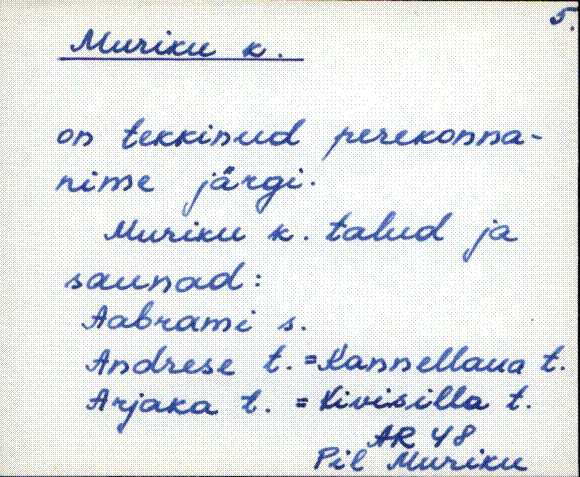 5.
Muriku k.
on tekkinud perekonna-
nime järgi.
Muriku k. talud ja
saunad:
Aabrami s.
Andrese t. = Kannellaua t.
Arjaka t. = Kivisilla t.
AR 48
Pil Muriku